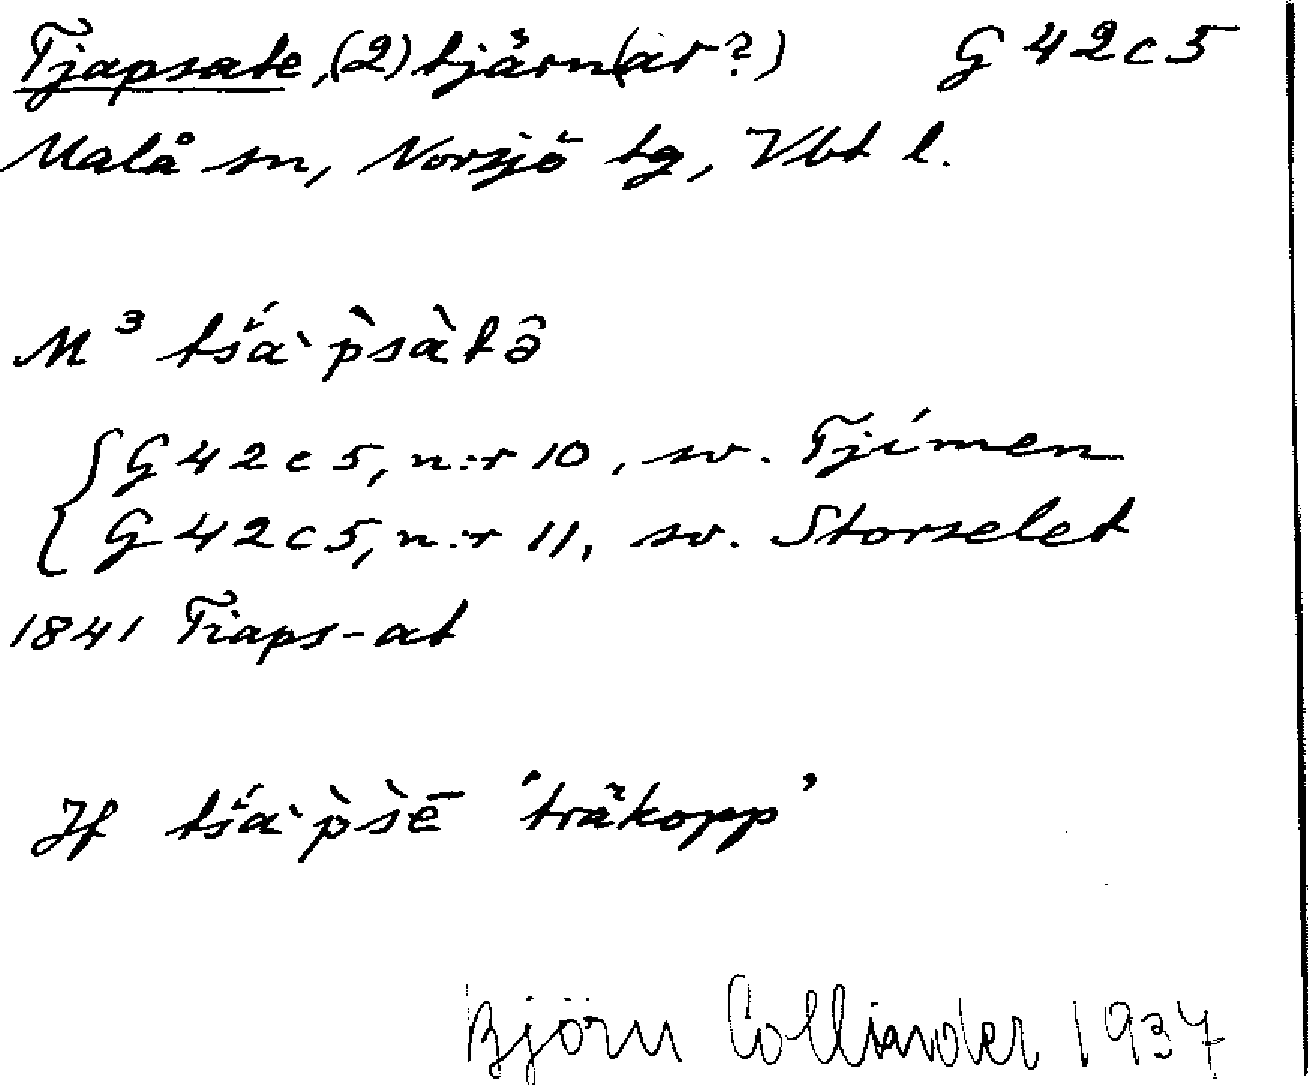 Tjapsate, (2) tjärn(ar?) G 42c5
Malå sn, Norsjö tg, Vbt l.
M³ tš́àˋp̀sàtə̂
G 42c5, n:r 10, sv. Tjímen
G 42c5, n:r 11, sv. Storselet
1841 Tiaps-at
Jf tš́àˋp̀s̀ē 'träkopp'
Björn Collinder 1937